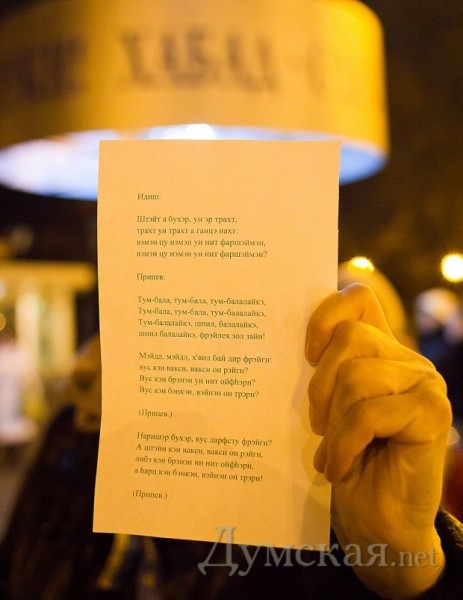 ХАБАД
Идиш:
Штэйт а бухэр, ун эр трахт,
трахт ун трахт а ганцэ нахт:
нэмэн цу нэмэн ун нит фаршэймэн,
нэмэн цу нэмэн ун нит фаршэймэн?
Припев:
Тум-бала, тум-бала, тум-балалайкэ,
Тум-бала, тум-бала, тум-балалайкэ,
Тум-балалайкэ, шпил, балалайкэ,
шпил балалайкэ, фрэйлех зол зайн!
Мэйдл, мэйдл, х'вил бай дир фрэйгн:
вус кэн вакси, вакси он рэйгн?
Вус кэн брэнэн ун нит ойфhэрн?
Вус кэн бэнкэн, вэйнэн он трэрн?
(Припев.)
Наришэр бухэр, вус дарфсту фрэйгн?
А штэйн кэн вакси, вакси он рэйгн,
либэ кэн брэнэн ин нит ойфhэрн,
а hарц кэн бэнкэн, вэйнэн он трэрн!
(Припев.)
Думская.net